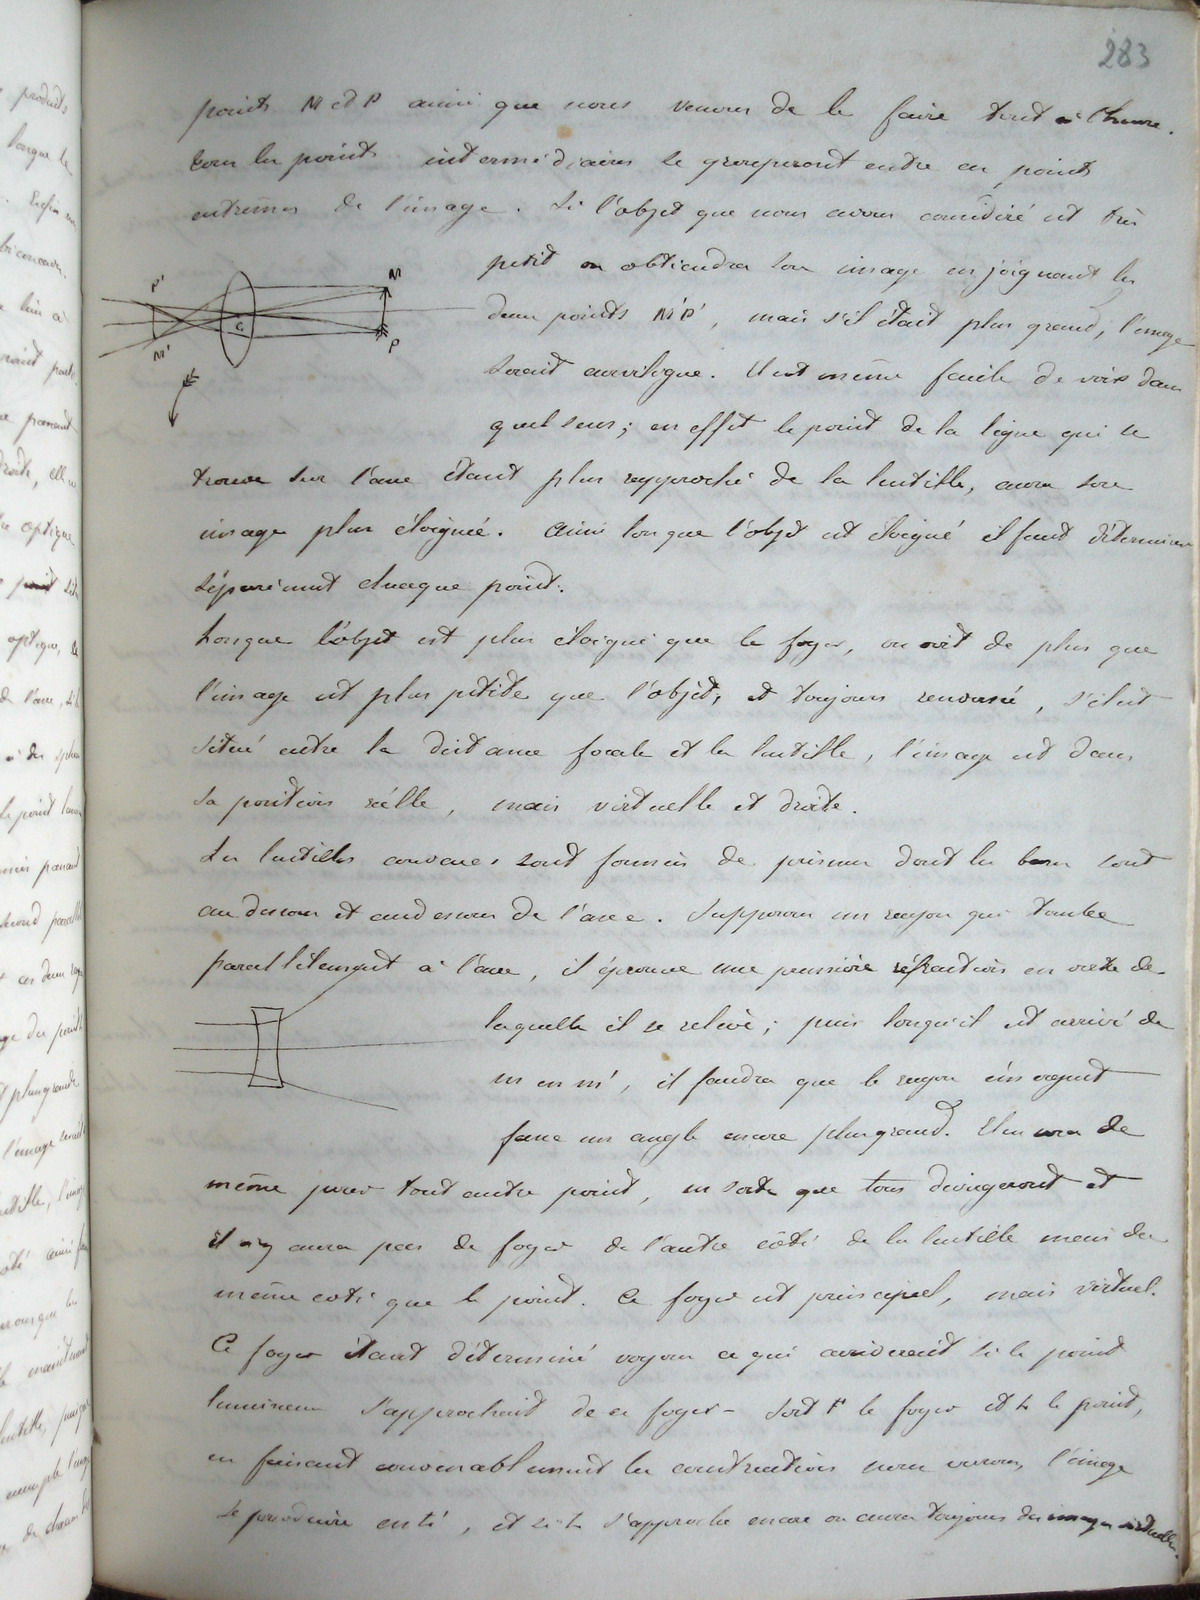 283
points M et P ainsi que nous venons de le faire tout à l'heure.
tous les points intermédiaires se grouperont entre ces points
extrêmes de l'image. Si l'objet que nous avons considéré est très
petit on obtiendra son image en joignant les
deux points M'P', mais s'il était plus grand, l'image
serait curviligne. Il est même facile de voir dans
quel sens; en effet le point de la ligne qui se
trouve sur l'axe étant plus rapproché de la lentille, aura son
image plus éloignée. Ainsi lorsque l'objet est éloigné il faut déterminer
séparément chaque point.
Lorsque l'objet est plus éloigné que le foyer, on voit de plus que
l'image est plus petite que l'objet, et toujours renversée, s'il est
situé entre la distance focale et la lentille, l'image est dans
sa position réelle, mais virtuelle et droite.
Les lentilles concaves sont formées de prismes dont les bases sont
au dessous et au dessus de l'axe. Supposons un rayon qui tombe
parallèlement à l'axe, il éprouve une première réfraction en vertu de
laquelle il se relève; puis lorsqu'il est arrivé de
m en m', il faudra que le rayon émergent
fasse un angle encore plus grand. Il en sera de
même pour tout autre point, en sorte que tous divergeront et
il n'y aura pas de foyer de l'autre côté de la lentille mais du
même coté que le point. Ce foyer est principal, mais virtuel.
Ce foyer étant déterminé voyons ce qui arriverait si le point
lumineux s'approchait de ce foyer - Soit F le foyer et L le point,
en faisant convenablement les constructions nous verrons, l'image
se produire en L', et si L s'approche encore on aura toujours des images virtuelles.
P'
M'
C
M
P